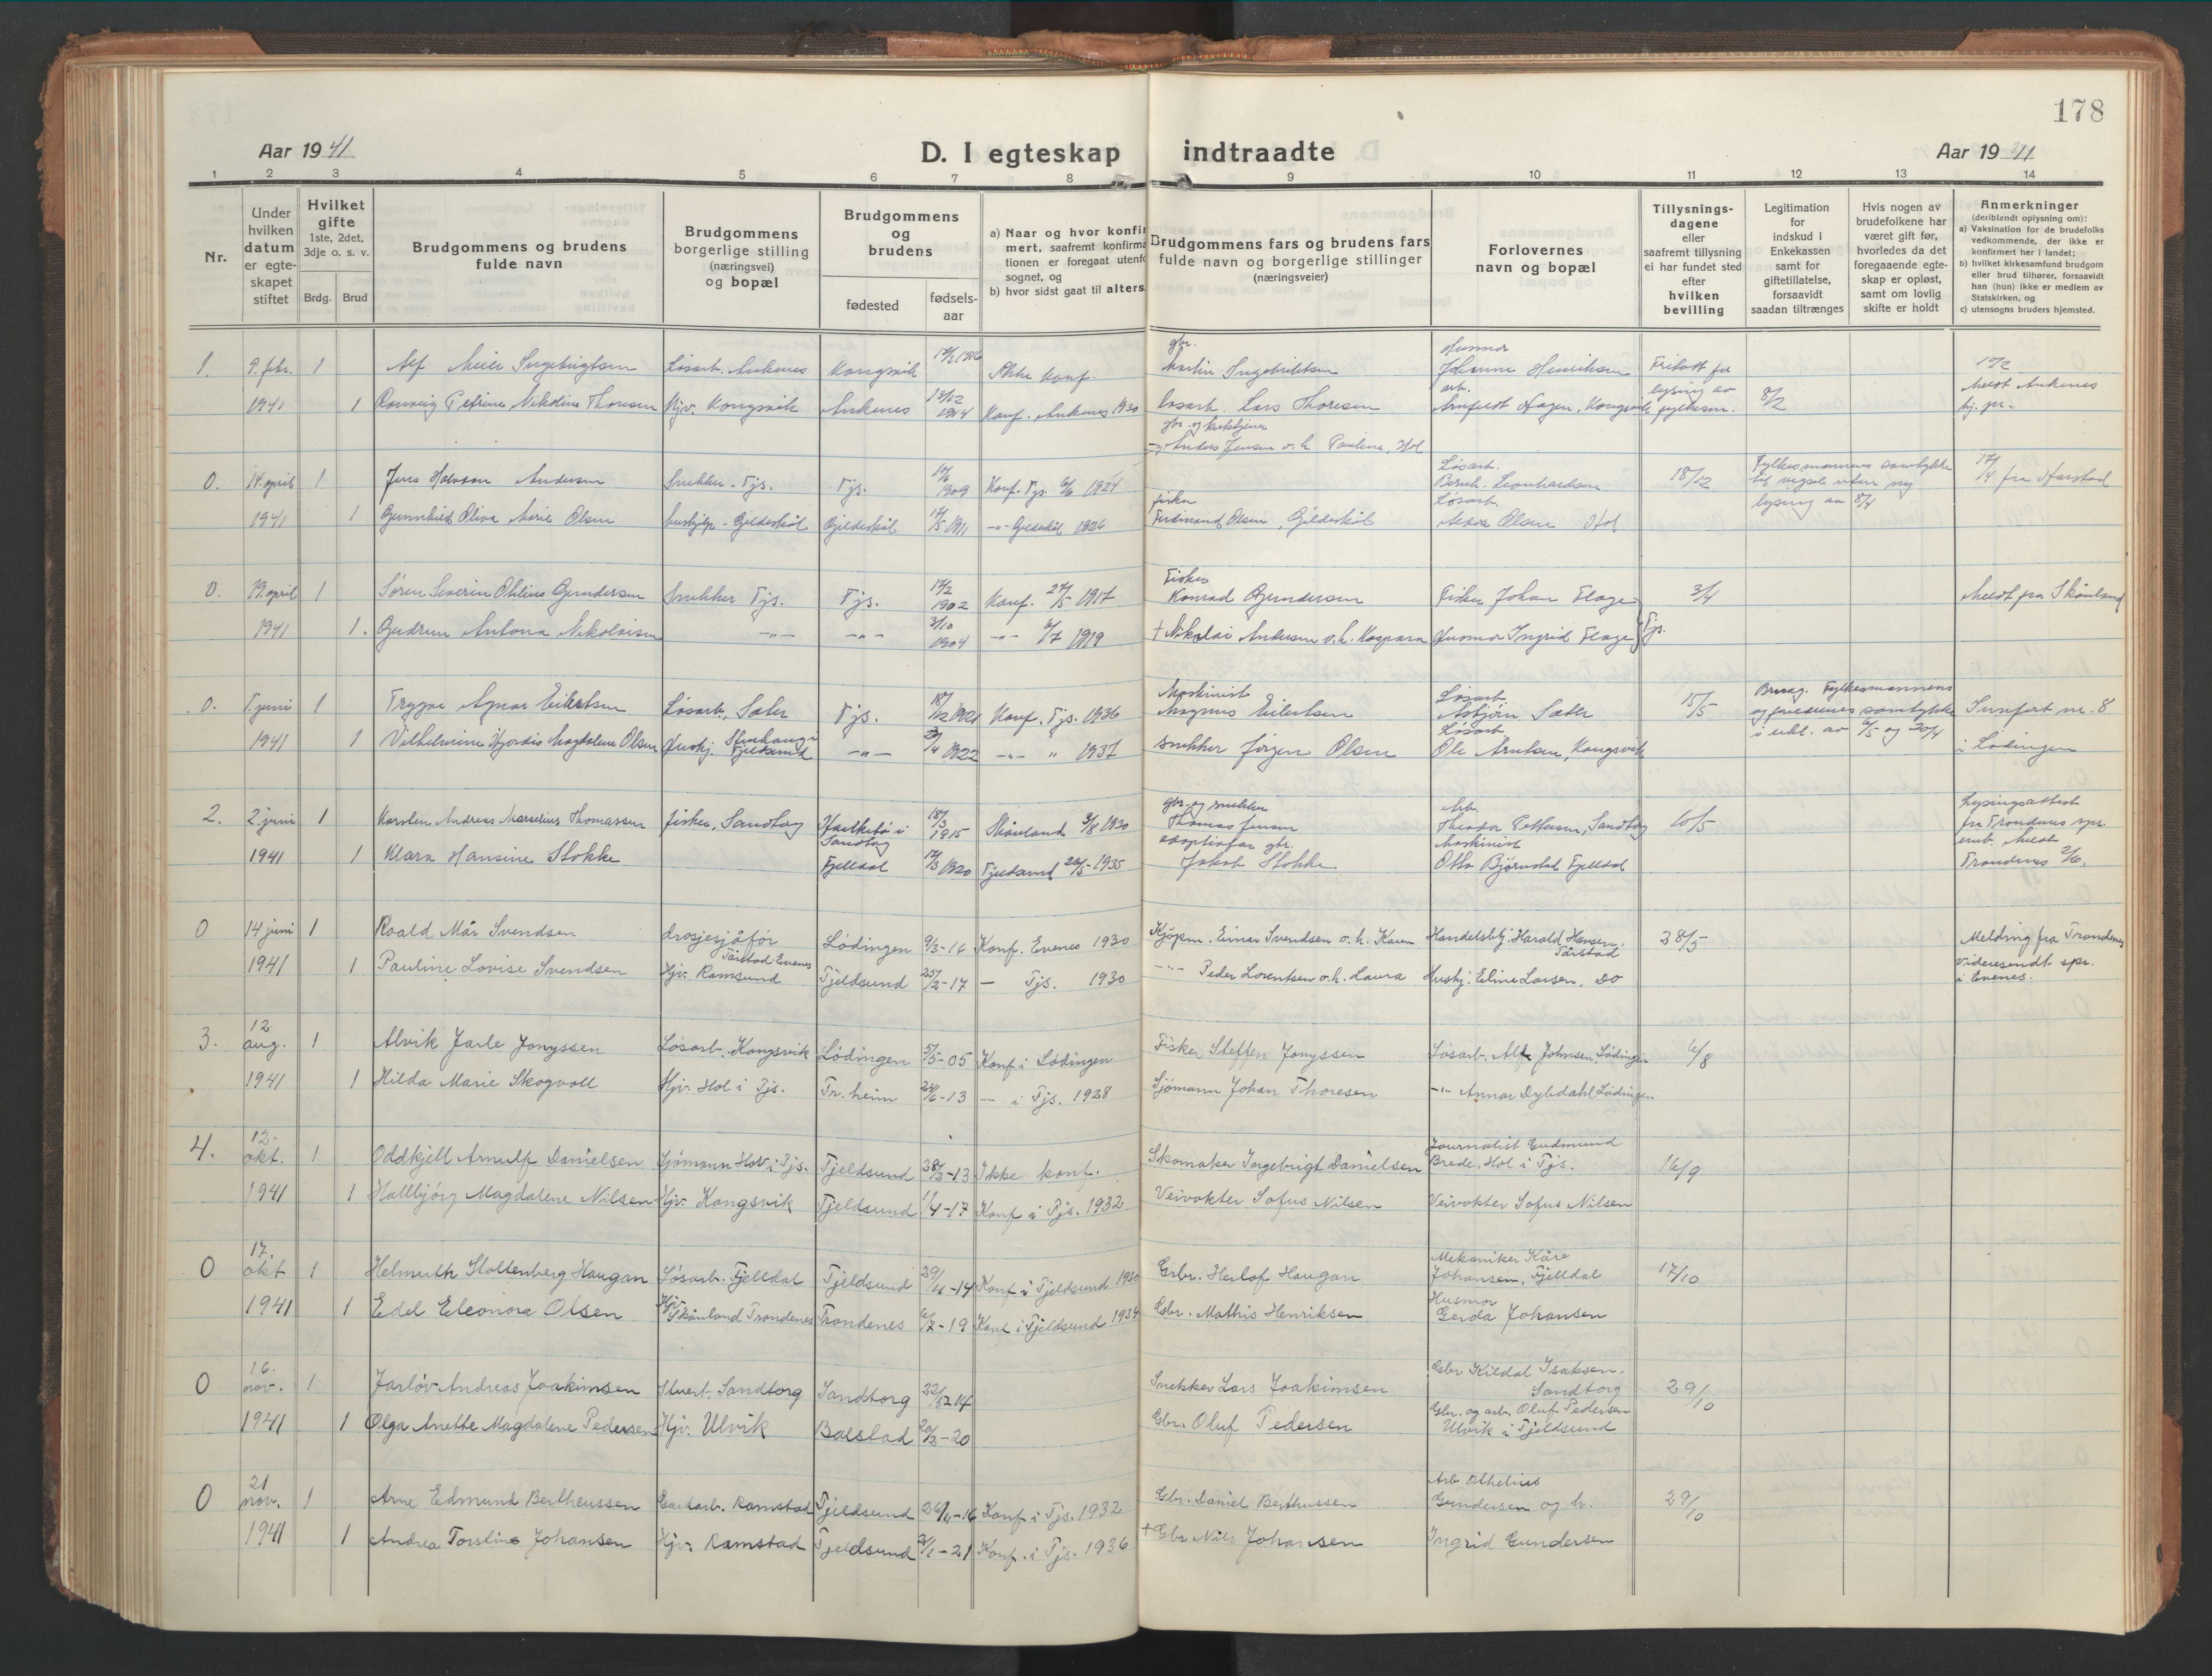 178
Aar 1941
D. I egteskap indtraadte
Aar 1941
1 2 3 4 5 6 7 8 9 10 11 12 13 14
Nr.
Under hvilken datum er egteskapet stiftet
Hvilket gifte 1ste, 2det, 3dje o. s. v.
Brdg. Brud
Brudgommens og brudens fulde navn
Brudgommens borgerlige stilling (næringsvei) og bopæl
Brudgommens og brudens
fødested
fødselsaar
a) Naar og hvor konfir
mert, saafremt konfirma
tionen er foregaat utenfo
sognet, og
b) hvor sidst gaat til alters.
Brudgommens fars og brudens fars fulde navn og borgerlige stillinger (næringsveier)
Forlovernes navn og bopæl
Tillysningsdagene eller saafremt tillysning ei har fundet sted efter hvilken bevilling
Legitimation for indskud i Enkekassen samt for giftetillatelse, forsaavidt saadan tiltrænges
Hvis nogen av brudefolkene har været gift før, hvorledes da det foregaaende egteskap er opløst, samt om lovlig skifte er holdt
Anmerkninger
(deriblandt oplysning om):
a) Vaksination for de brudefolks vedkommende, der ikke er konfirmert her i landet;
b) hvilket kirkesamfund brudgom eller brud tilhører, forsaavidt han (hun) ikke er medlem av Statskirken, og
c) utensogns bruders hjemsted.
1. 9. febr. 1 Alf Meier Ingebrigtsen Løsarb. Ankenes Kongsvik Ikke konf. gbr. Martin Ingebriktsen Husmor Johanne Henriksen Fritatt for
1941 1 Ranveig Petrine Nikoline Thoresen Hjv. Kongsvik Ankenes 1914 Konf. Ankenes 1930 løsarb. Lars Thoresen arb. Arnfeldt Hagen, Kongsvik lysing av fylkesm. 8/2 Meldt Ankenes
gbr. og
Anders Jensen o. h. Pauline, Hol
0. 14. april 1 Jens Andersen Snekker - Tjs. Tjs. 1909 Konf. Tjs. 1924 Løsarb. Bernh. Leonhardsen 18/12 Fylkesmannens samtykke til vigsel uten ny lysing av 8/4 17/4 fra Harstad
1941 1 Gunnhild Oliva Marie Olsen hushjelp - Gildeskål Gildeskål 1911 -"- Gildeskål 1926 fisker Ferdinand Olsen, Gildeskål Løsarb. Olsen Hol
0. 19. april 1 Søren Severin Othlius Gundersen Snekker Tjs. Tjs. 17/2 1902 Konf. 27/5 1917 Fisker Konrad Gundersen Fisker Johan Flage 3/4 Meldt fra Skånland
1941 1. Gudrun Antona Nikolaisen -"- -"- 3/10 1904 -"- 6/7 1919 + Nikolai Andersen o. h. Kaspara Husmor Ingrid Flage Tjs.
0. 1. juni 1 Trygve Agnar Eilertsen Løsarb., Sæter Tjs. 18/12 1921 Konf. Tjs. 1936 Maskinist Magnus Eilertsen Løsarb. Asbjørn Sæter 15/5 Brudg. Fylkesmannens Sunfert nr. 8
1941 1 Vilhelmine Hjørdis Magdalene Olsen Hushj. Stenhaug Fjeldsund -"- 1922 -"- " 1937 snekker Jørgen Olsen Løsarb. Ole Arntsen, Kongsvik og samtykke i av 6/5 og 30/4 i Lødingen
2. 2. juni 1 Karsten Andreas Marselius Thomassen fisker, Sandtorg i Sandtorg 18/3 1915 Skånland 3/8 1930 gbr. og snekker Thomas Jensen Arb. Theodor Pettersen, Sandtorg 10/5 Lysingsattest fra Trondenes spr.
1941 1 Klara Hansine Stokke Fjelldal 1920 Tjeldsund 26/5 - 1935 adoptivfar gbr. Jakob Stokke Maskinist Otto Bjørnstad Fjelldal emb. Meldt Trondenes 2/6.
0 14 juni 1 Roald Mår Svendsen drosjesjåfør Tårstad - Evenes Lødingen 9/3 - 16 Konf. Evenes 1930 Kjøpm. Einar Svendsen o. h. Karen Handelsbtj. Harald Hansen, Tårstad 28/5 Melding fra Trondenes
1941 1 Pauline Lovise Svendsen Hjv. Ramsund Tjeldsund 25/2 - 17 - Tjs. 1930 -"- Peder Lorentsen o. h. Laura Hushj. Eline Larsen, do Videresendt spr. i Evenes.
3. 12 aug. 1 Alvik Jarle Jonyssen Løsarb. Kongsvik Lødingen 5/5 - 05 Konf i Lødingen Fisker Steffen Jonyssen Løsarb. Alf Johnsen, Lødingen 6/8
1941 1 Hilda Marie Skogvoll Hjv. Hol i Tjs. Tr.heim 24/6 - 13 -"- i Tjs. 1928 Sjømann Johan Thoresen -"- Annar Dybdahl Lødingen
4. 12. okt. 1 Oddkjell Arnulf Danielsen Sjømann Hol i Tjs. Tjeldsund 28/2 - 13 Ikke konf. Skomaker Ingebrigt Danielsen Journalist Gudmund Brede, Hol i Tjs. 16/9
1941 1 Hallbjørg Magdalene Nilsen Hjv. Kongsvik Tjeldsund 11/4 - 17 Konf i Tjs. 1932 Veivokter Sofus Nilsen Veivokter Sofus Nilsen
0 17. okt 1 Helmuth Stoltenberg Haugan Løsarb. Fjelldal Tjeldsund 29/11 - 14 Konf i Tjeldsund 1930 Grbr. Herlof Haugan Mekaniker Kåre Johansen, Fjelldal 17/10
1941 1 Edel Eleonora Olsen Hjv. Skånland Trondenes Trondenes 6/7 - 19 Konf i Tjeldsund 1934 Gbr. Mathis Henriksen Husmor Gerda Johansen
0 16. nov. 1 Jarløv Andreas Joakimsen Stuert. Sandtorg Sandtorg 22/12 14 Snekker Lars Joakimsen Gbr Kildal Isaksen, Sandtorg 29/10
1941 1 Olga Anette Magdalene Pedersen Hjv. Ulvik Balstad 20/2 - 20 Gbr. Oluf Pedersen Gbr. og arb. Oluf Pedersen Ulvik i Tjeldsund
0 21 nov. 1 Arne Edmund Bertheussen Gardarb. Ramstad Tjeldsund 26/11 - 16 Konf i Tjs. 1932 Gbr. Daniel Berthussen Arb Othelius Gundersen og h. 29/10
1941 1 Andrea Torsline Johansen Hjv. Ramstad Tjeldsund 2/1 - 21 Konf. i Tjs. 1936 + Gbr Nils Johansen Ingrid Gundersen